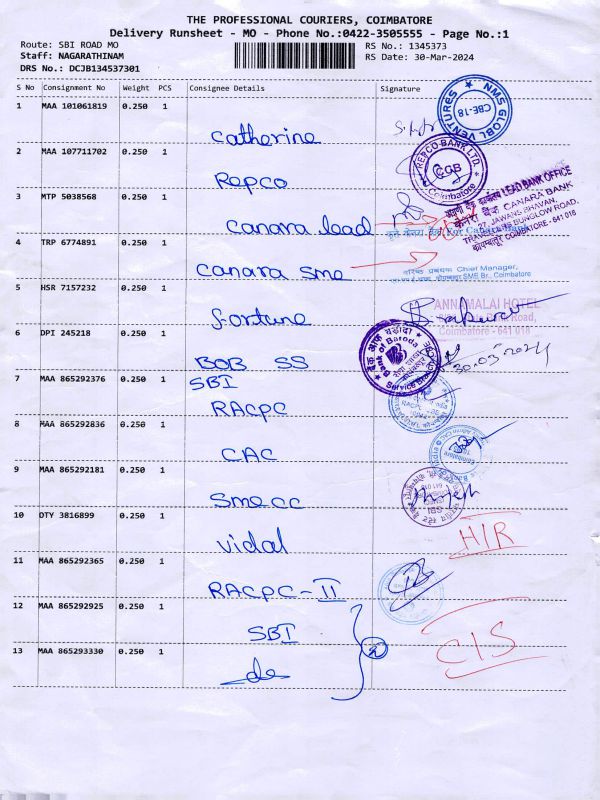 THE PROFESSIONAL COURIERS, COIMBATORE
Delivery Runsheet - MO - Phone No.:0422-3505555 - Page No.:1
Route: SBI ROAD MO
Staff: NAGARATHINAM
DRS No.: DCJB134537301
RS No.: 1345373
RS Date: 30-Mar-2024
S No Consignment No Weight PCS Consignee Details Signature
1 MAA 101061819 0.250 1
Catherine
NMS GLOBL VENTURES
CBE-18
2 MAA 107711702 0.250 1
Repco
REPCO BANK LTD.
CGB
Coimbatore
3 MTP 5038568 0.250 1
Canara lead
LEAD BANK OFFICE
केनरा बैंक CANARA BANK
27, JAWANS BHAVAN,
TRAVELLERS BUNGLOW ROAD,
कोयम्बत्तूर COIMBATORE - 641 018
4 TRP 6774891 0.250 1
Canara sme
For Canara Bank
Chief Manager,
SME Br. Coimbatore
5 HSR 7157232 0.250 1
fortune
ANNAMALAI HOTEL
Road,
Coimbatore - 641 018
6 DPI 245218 0.250 1
BOB SS
Bank of Baroda
बैंक ऑफ़ बड़ौदा
30.03.2024
7 MAA 865292376 0.250 1
SBI
RACPC
8 MAA 865292836 0.250 1
CAC
Coimbatore
9 MAA 865292181 0.250 1
Smecc
SBI
10 DTY 3816899 0.250 1
Vidal
HIR
11 MAA 865292365 0.250 1
RACPC-II
12 MAA 865292925 0.250 1
SBI
CIS
13 MAA 865293330 0.250 1
do